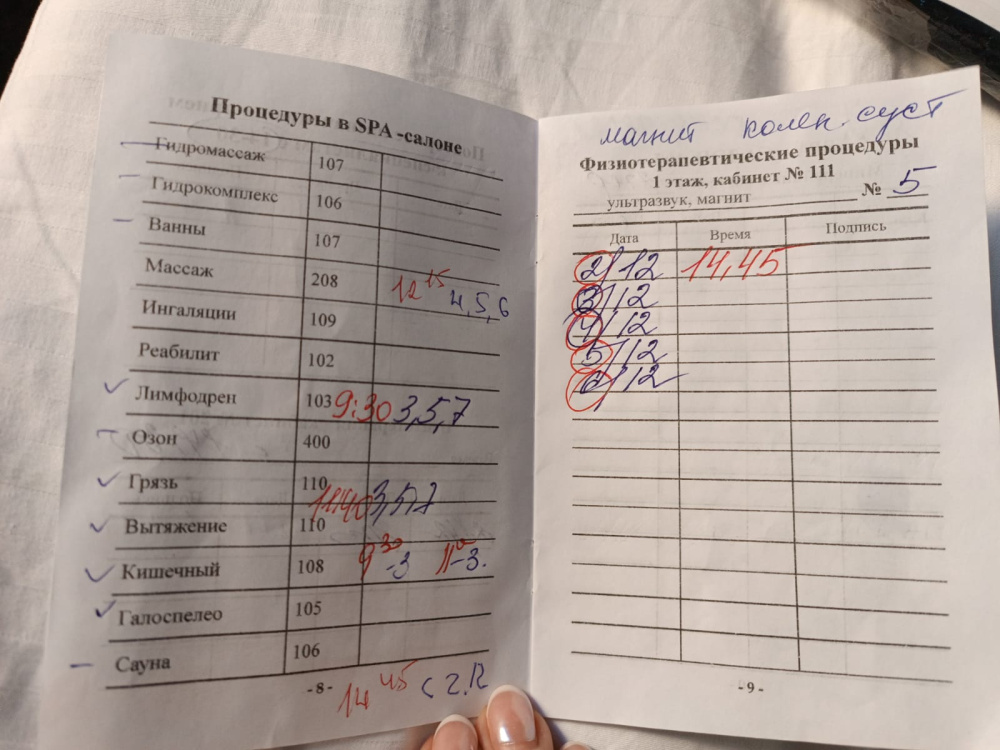 Процедуры в SPA-салоне
Гидромассаж 107
Гидрокомплекс 106
Ванны 107
Массаж 208 12 15 4,5,6
Ингаляции 109
Реабилит 102
Лимфодрен 103 9:30 3,5,7
Озон 400
Грязь 110 3,5,7
Вытяжение 110
Кишечный 108 9 30 -3 11 0 -3.
Галоспелео 105
Сауна 106
-8-
14 45 с 2.12
магнит колен. суст
Физиотерапевтические процедуры
1 этаж, кабинет № 111
ультразвук, магнит № 5
Дата Время Подпись
2/12 14,45
3/12
4/12
5/12
6/12
-9-